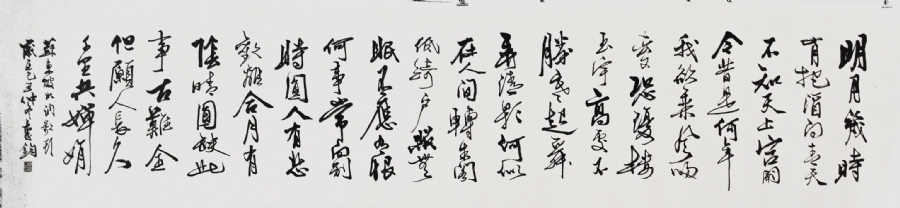 明月幾時
有把酒问青天
不知天上宫阙
今昔是何年
我欲乘风归
去又恐瓊楼
玉宇高處不
勝寒起舞
弄清影何似
在人間轉朱阁
低綺户照無
眠不應有恨
何事常向别
時圆人有悲
歡離合月有
陰晴圆缺此
事古難全
但願人長久
千里共嬋娟
蘇東坡水调歌头